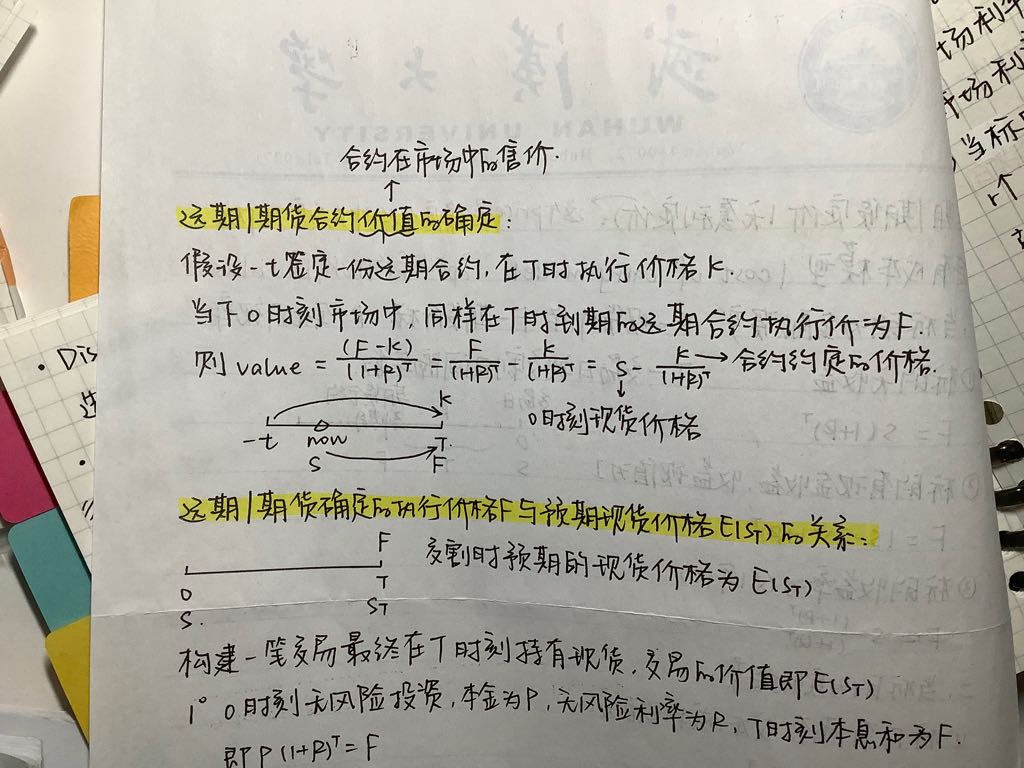 合约在市场中的售价.
↑
远期/期货合约价值的确定:
假设-t签定一份远期合约, 在T时执行价格K.
当下0时刻市场中, 同样在T时到期的远期合约执行价为F.
则 value = (F-K)/(1+R)^T = F/(1+R)^T - K/(1+R)^T = S - K/(1+R)^T → 合约约定的价格.
↓
0时刻现货价格
K
-t now T.
S F
远期/期货确定的执行价格F与预期现货价格E(S_T)的关系:
F
交割时预期的现货价格为 E(S_T)
0 T
S. S_T
构建一笔交易最终在T时刻持有现货, 交易的价值即E(S_T)
1° 0时刻无风险投资, 本金为P, 无风险利率为R, T时刻本息和为F.
即 P(1+R)^T = F
武汉大学
WUHAN UNIVERSITY
场利率
市场利
当标
个
Dis